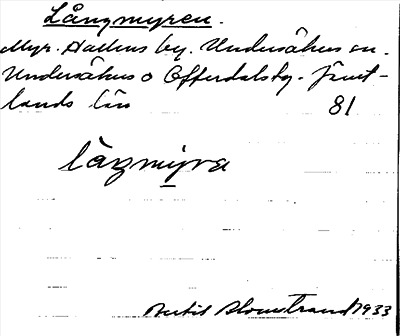 Långmyren.
Myr. Hallens by. Undersåkers sn.
Undersåkers o Offerdals tg. Jämt-
lands län 81
làŋmy̱ra
Bertil Blomstrand 1933